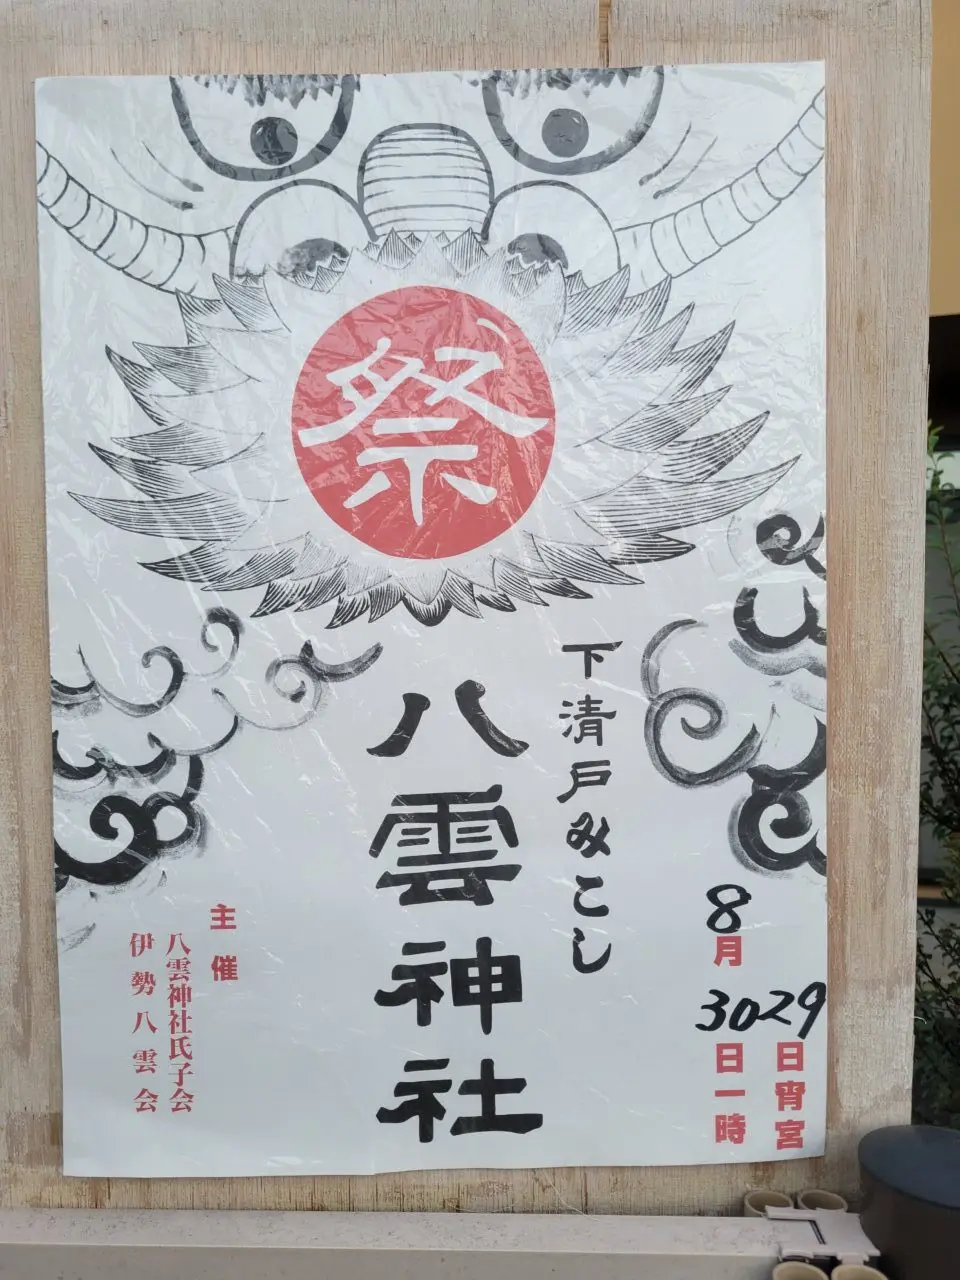 祭
下清戸みこし
八雲神社
29日宵宮
8月30日一時
主催
八雲神社氏子会
伊勢八雲会